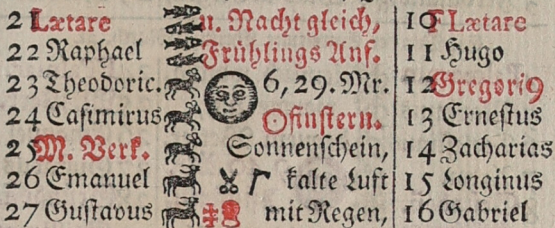 21 Lætare u. Nacht gleich, 10 F Lætare
22 Raphael Frühlings Anf. 11 Hugo
23 Theodoric. 6, 29. Mr. 12 Gregoriꝰ
24 Casimirus ☉finstern. 13 Ernestus
25 M. Verk. Sonnenschein, 14 Zacharias
26 Emanuel kalte Luft 15 Longinus
27 Gustavus mit Regen, 16 Gabriel